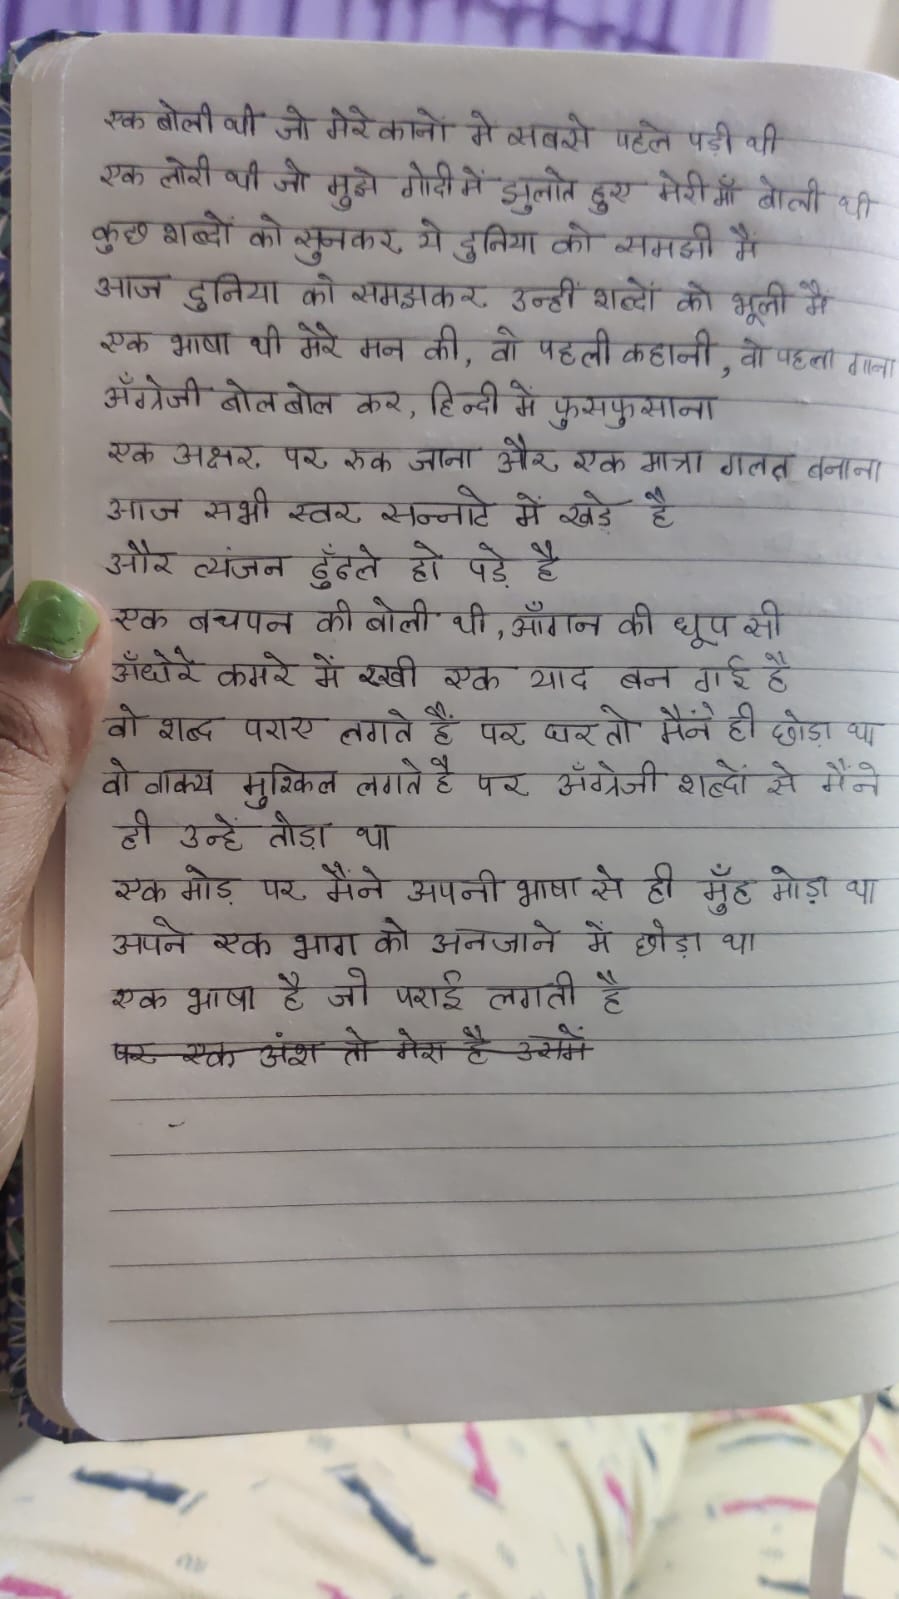 एक बोली थी जो मेरे कानों में सबसे पहले पड़ी थी
एक लोरी थी जो मुझे गोदी में झुलाते हुए मेरी माँ बोली थी
कुछ शब्दों को सुनकर ये दुनिया को समझी मैं
आज दुनिया को समझकर उन्हीं शब्दों को भूली मैं
एक भाषा थी मेरे मन की, वो पहली कहानी, वो पहला गाना
अँग्रेजी बोल बोल कर, हिन्दी में फुसफुसाना
एक अक्षर पर रुक जाना और एक मात्रा गलत बनाना
आज सभी स्वर सन्नाटे में खड़े है
और व्यंजन ढुँढले हो पड़े है
एक बचपन की बोली थी, आँगन की धूप सी
अँधेरे कमरे में रखी एक याद बन गई है
वो शब्द पराए लगते हैं पर घर तो मैंने ही छोड़ा था
वो वाक्य मुश्किल लगते है पर अँग्रेजी शब्दों से मैंने
ही उन्हें तोड़ा था
एक मोड़ पर मैंने अपनी भाषा से ही मुँह मोड़ा था
अपने एक भाग को अनजाने में छोड़ा था
एक भाषा है जो पराई लगती है
पर एक अंश तो मेरा है उसमें